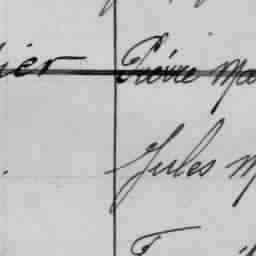 ier Pierre Ma
Jules M